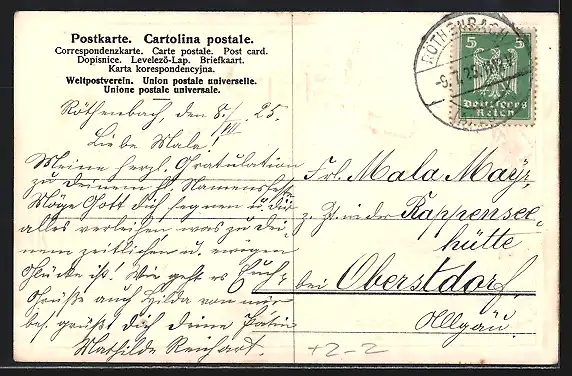 Postkarte. Cartolina postale.
Correspondenzkarte. Carte postale. Post card.
Dopisnice. Levelező-Lap. Briefkaart.
Karta korespondencyjna.
Weltpostverein. Union postale universelle.
Unione postale universale.
RÖTHENBACH
5 5
Deutsches
Reich
Röthenbach, den 8./VII. 25.
Liebe Male!
Meine herzl. Gratulation
zu deinem hl. Namensfeste
Möge Gott dich segnen u. dir
alles verleihen was zu dei-
nem zeitlichen u. ewigen
Glücke ist! Wie geht es Euch?
Grüße auch Hilda von mir
bes. grüßt dich deine Patin
Mathilde Reichart.
Frl. Mala Mayr,
z. Zt. in der Rappensee-
hütte
bei Oberstdorf,
Allgäu.
+2-2